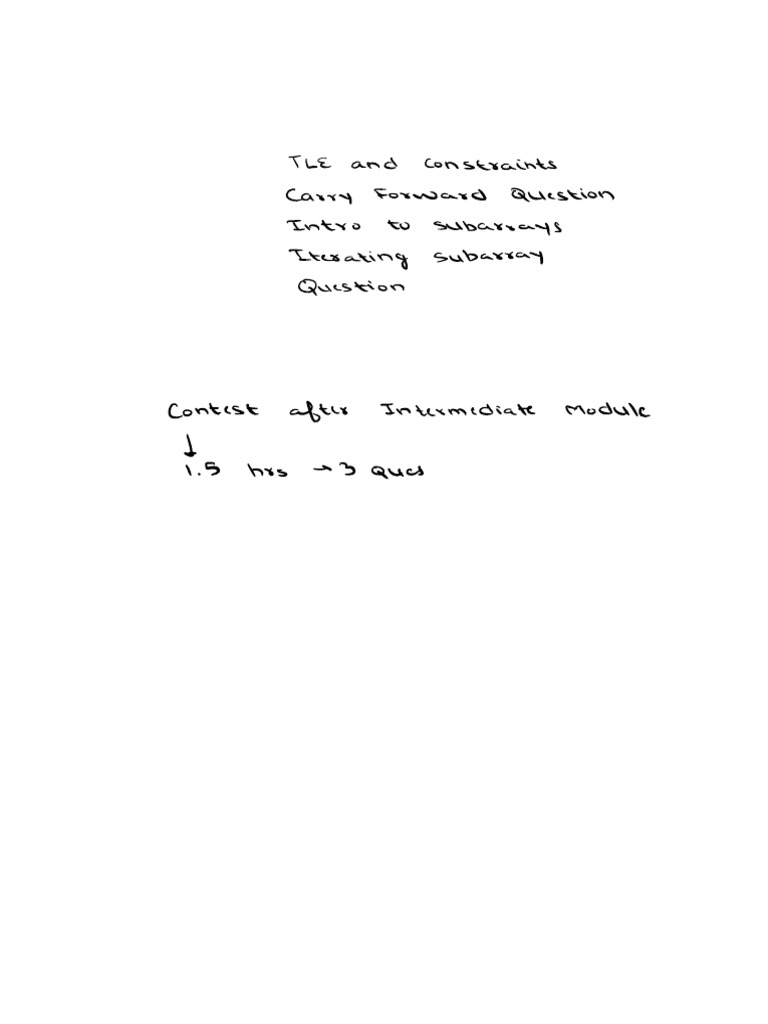 TLE and constraints
Carry Forward Question
Intro to subarrays
Iterating subarray
Question
Contest after Intermediate Module
↓
1.5 hrs → 3 Ques